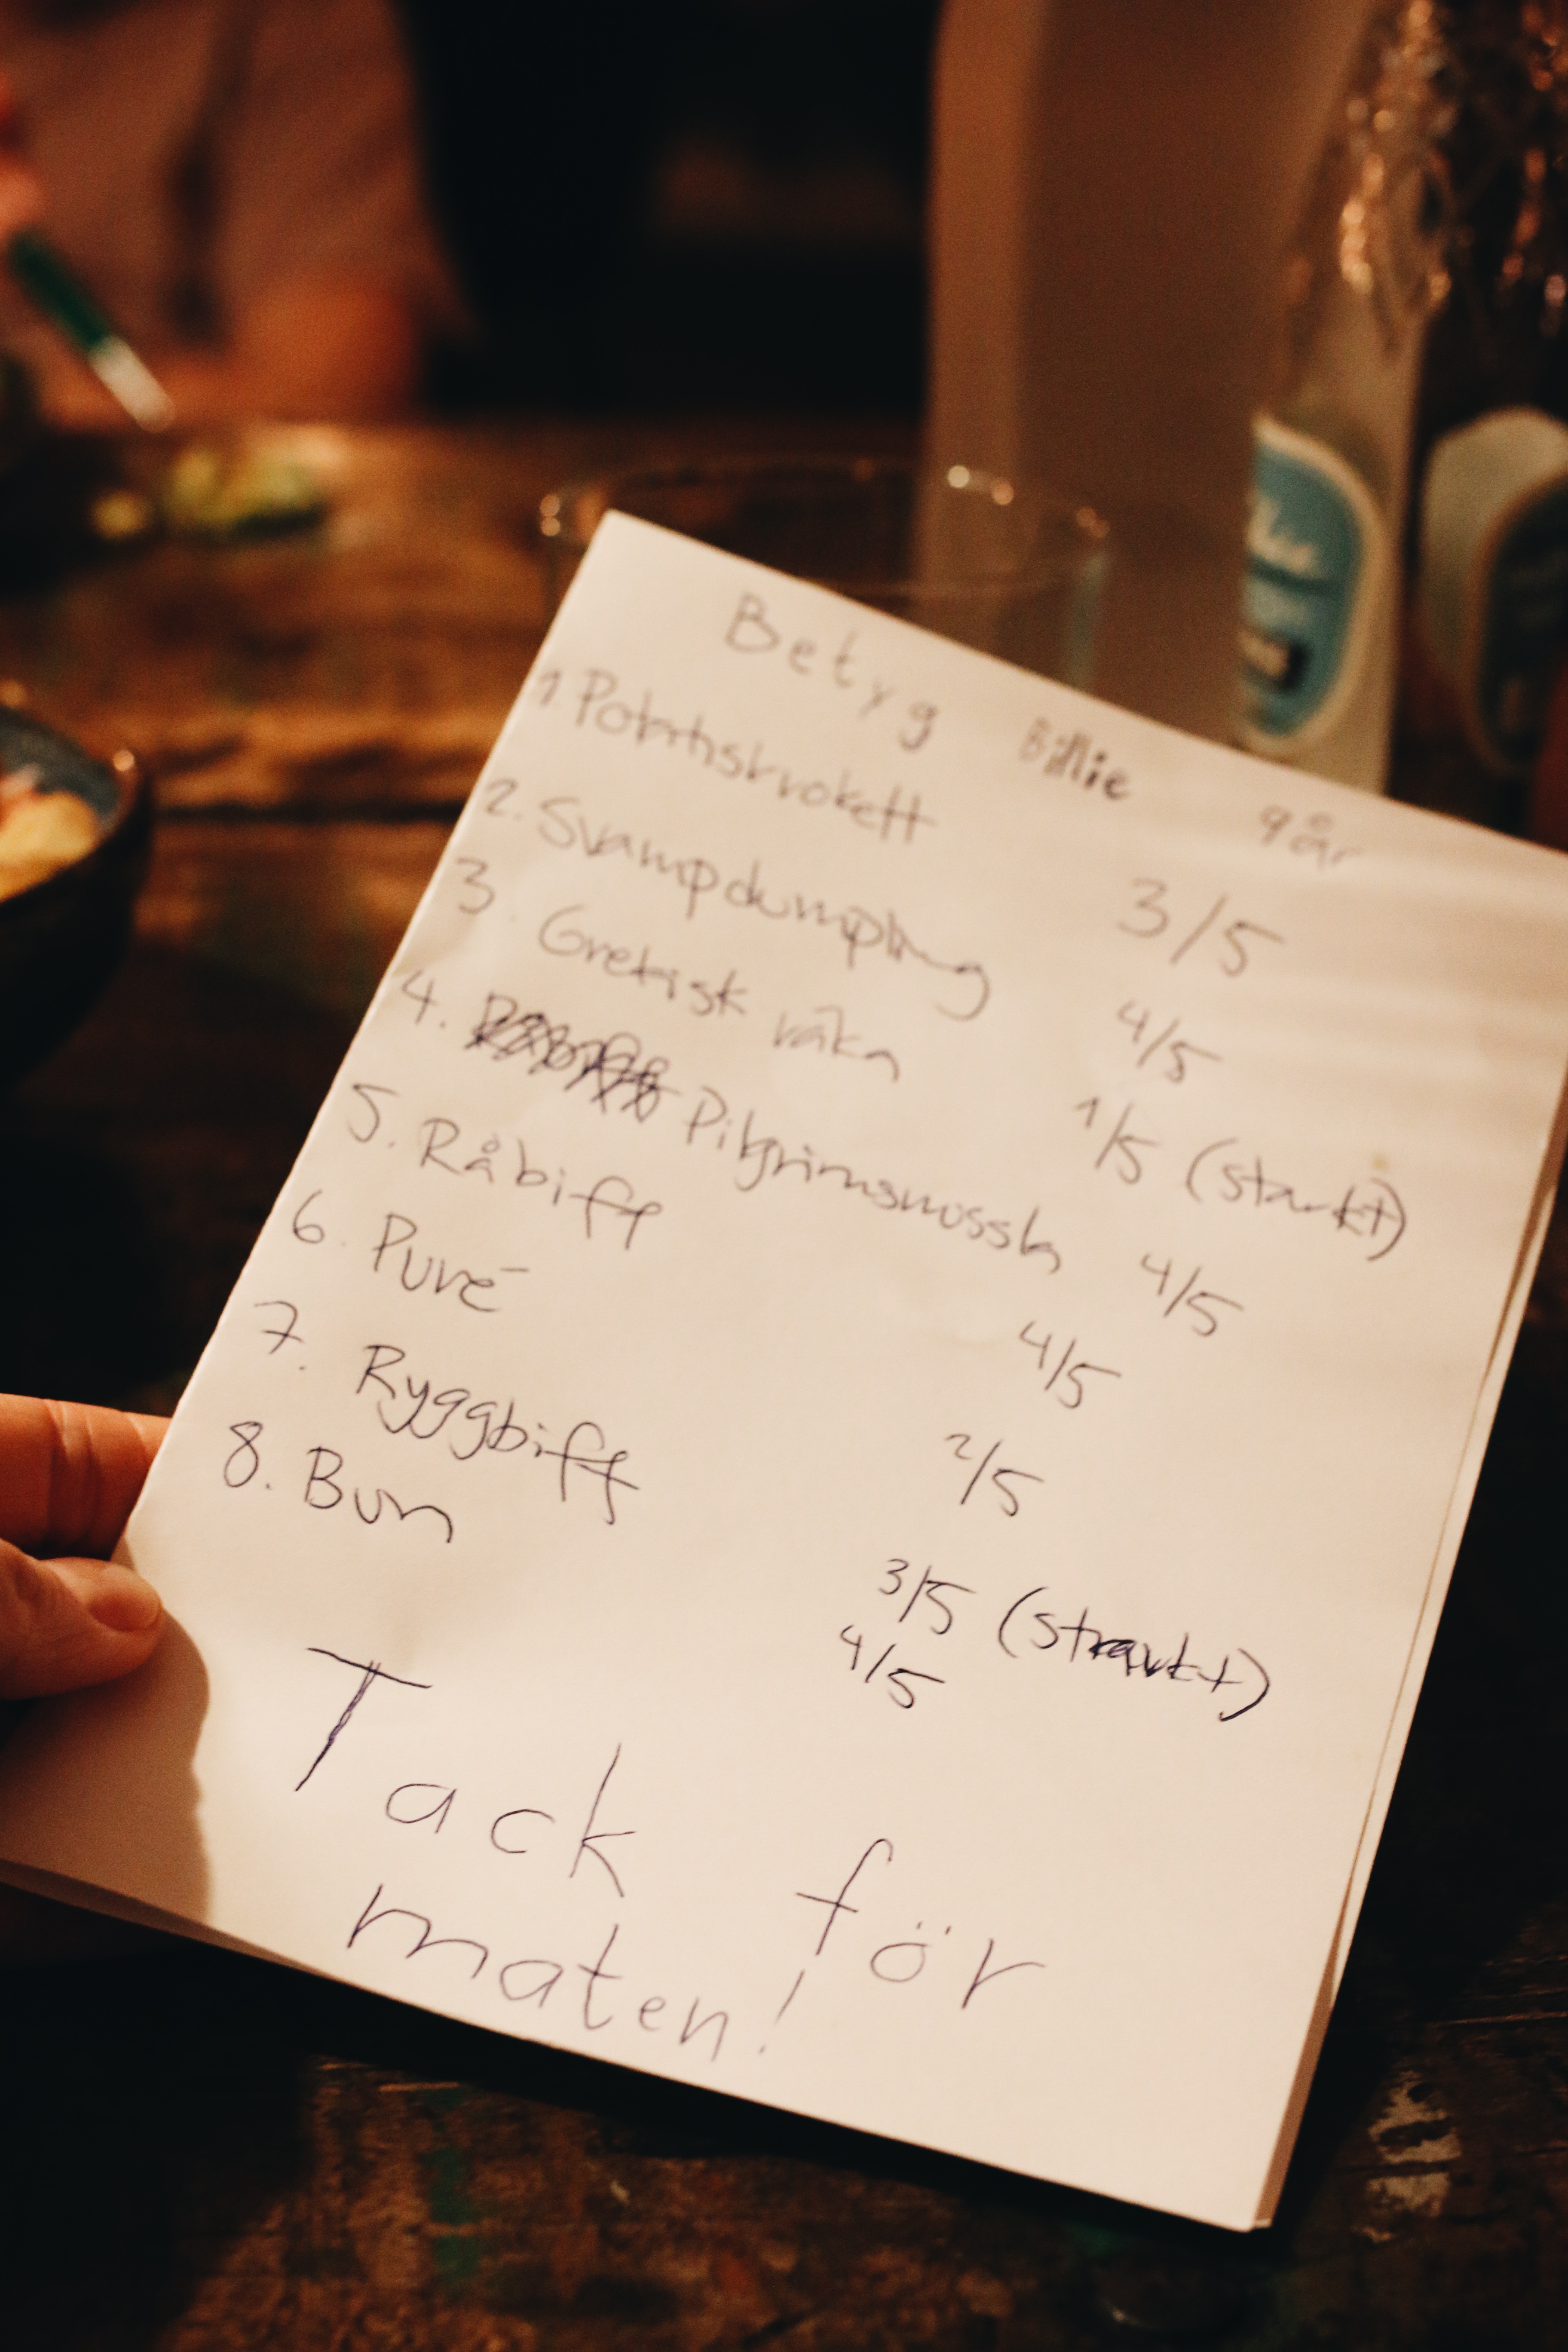 Betyg Billie 9 år
1. Potatiskrokett 3/5
2. Svampdumpling 4/5
3. Gretisk räka 1/5 (starkt)
4. Pilgrimsmussla 4/5
5. Råbiff 4/5
6. Puré 2/5
7. Ryggbiff 3/5 (starkt)
8. Bun 4/5
Tack för
maten!